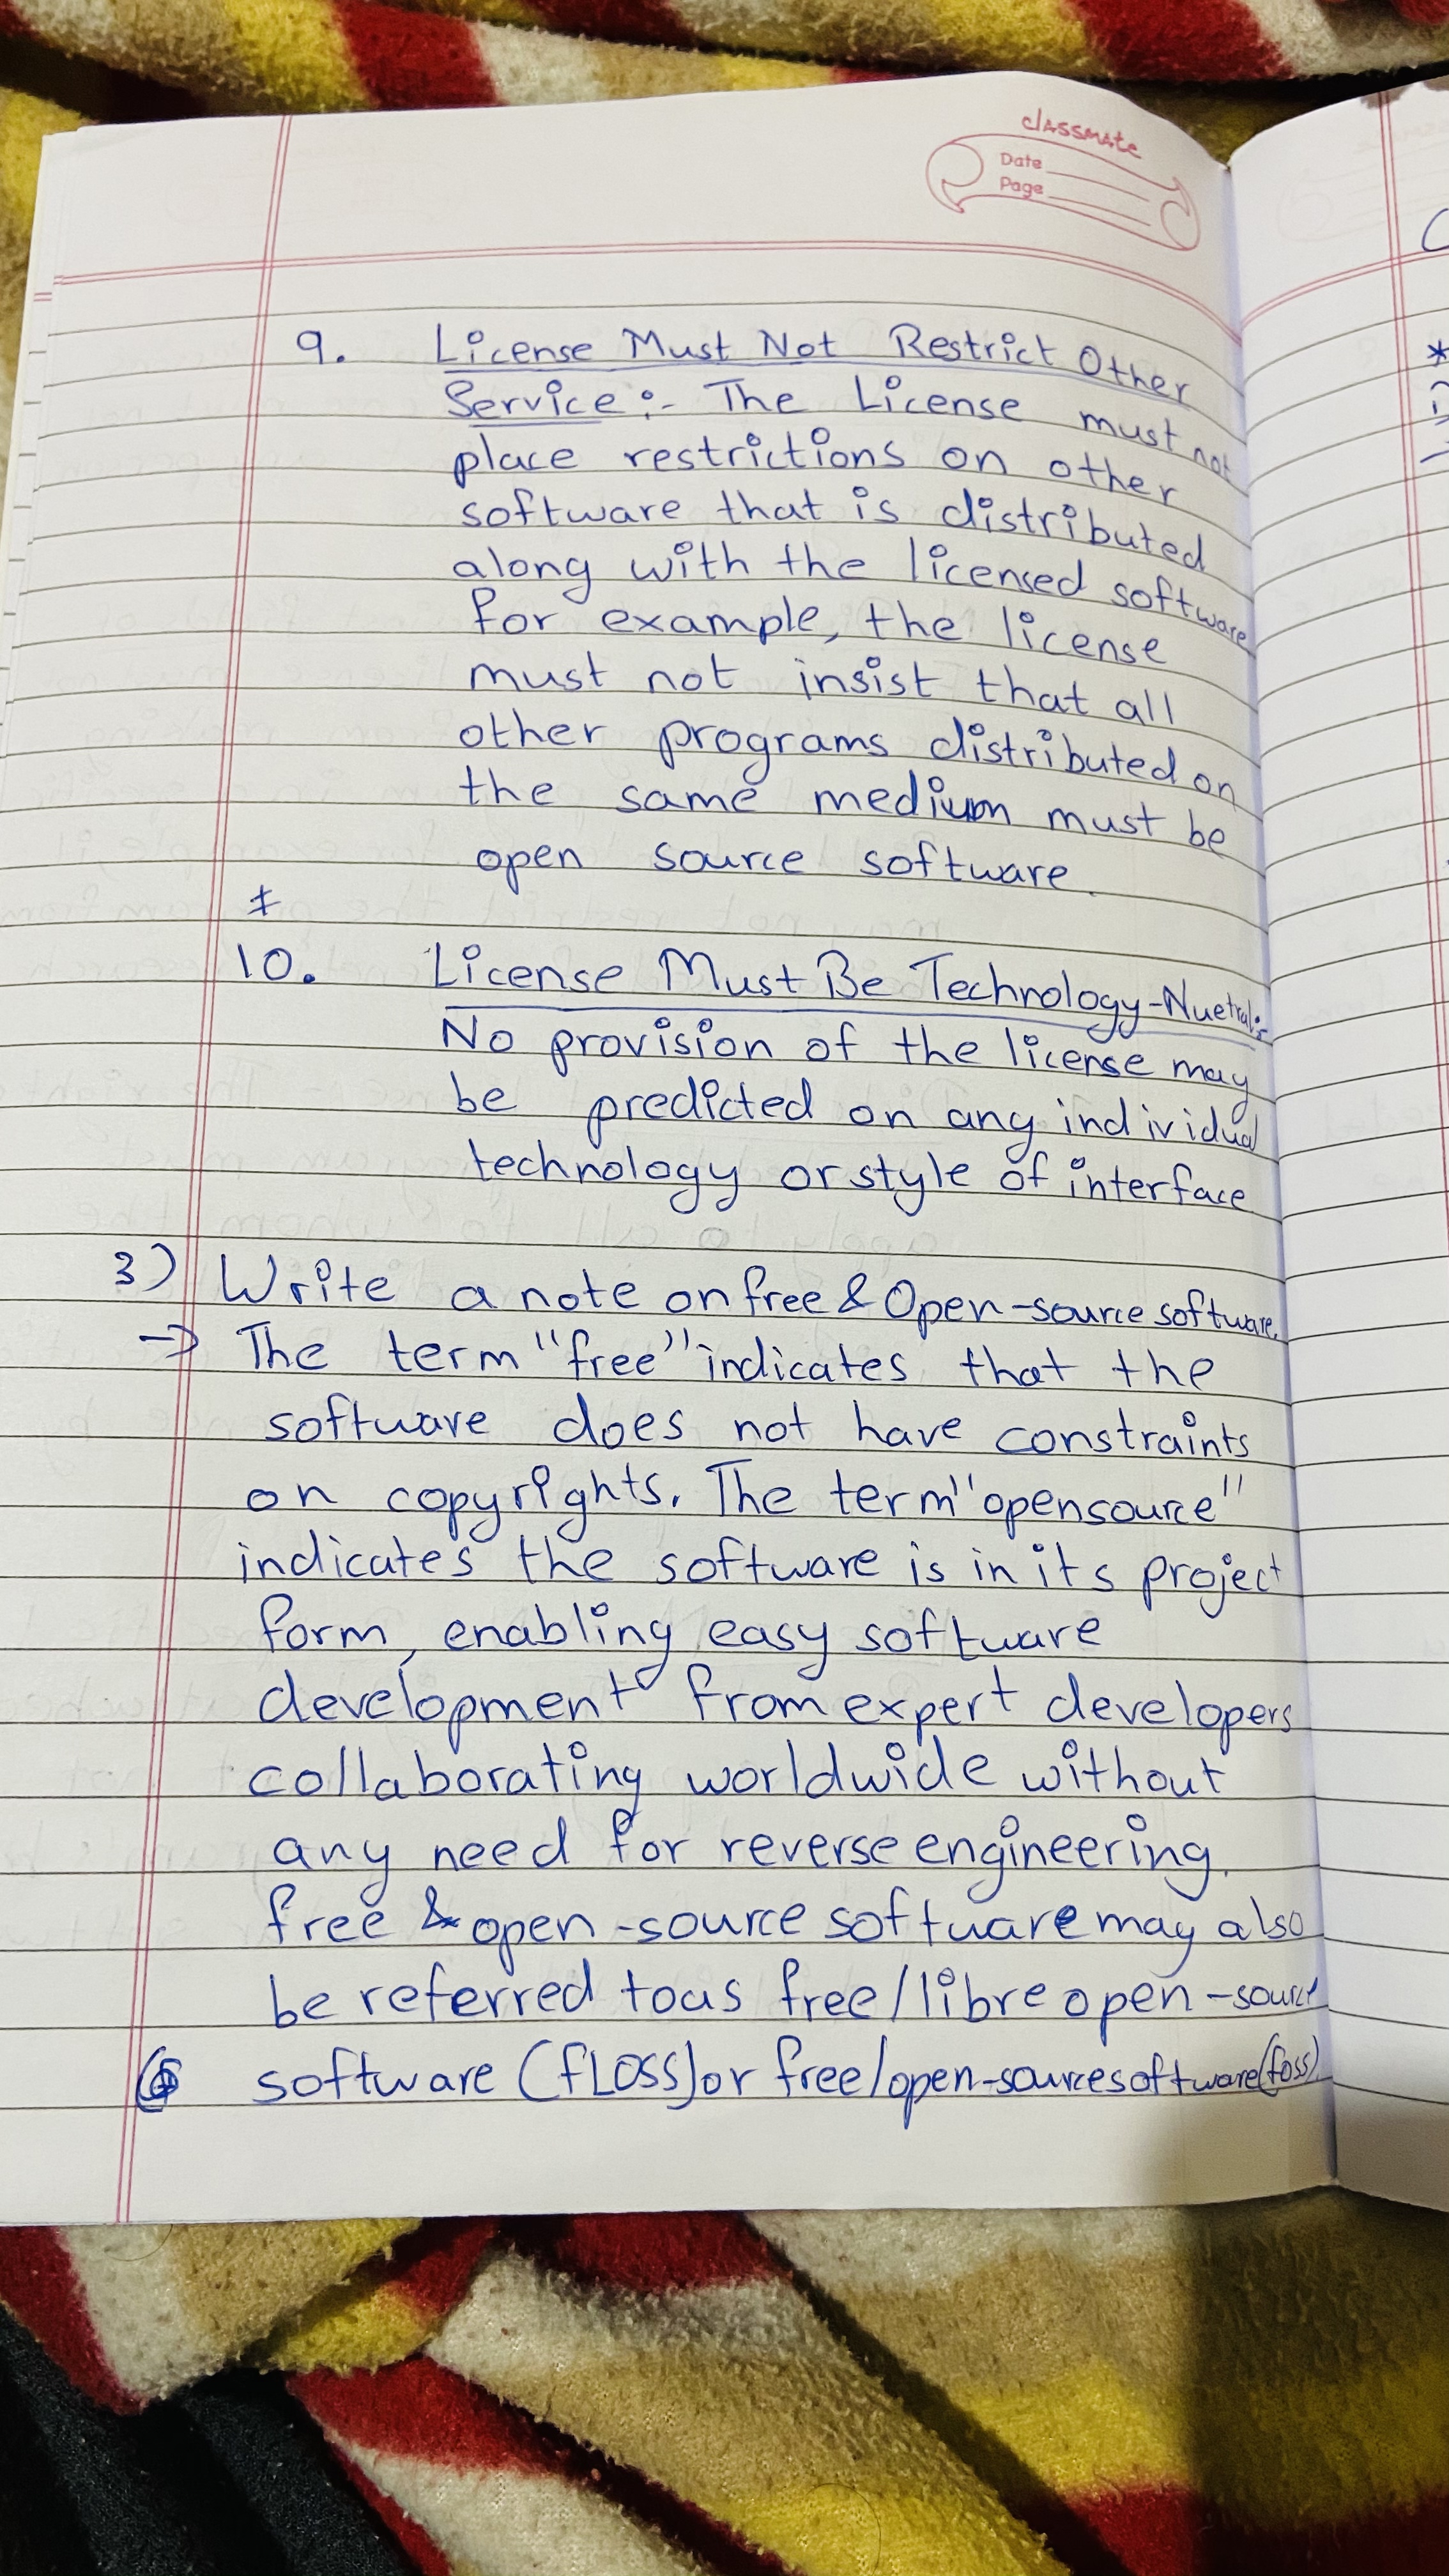 classmate
Date
Page
9. License Must Not Restrict Other
Service :- The License must not
place restrictions on other
software that is distributed
along with the licensed software
for example, the license
must not insist that all
other programs distributed on
the same medium must be
open source software.
10. License Must Be Technology-Nuetral:-
No provision of the license may
be predicted on any individual
technology or style of interface
3) Write a note on free & Open-source software.
→ The term "free" indicates that the
software does not have constraints
on copyrights. The term "opensource"
indicates the software is in its project
form, enabling easy software
development from expert developers
collaborating worldwide without
any need for reverse engineering.
free & open-source software may also
be referred to as free/libre open-source
software (fLOSS) or free/open-source software (foss).